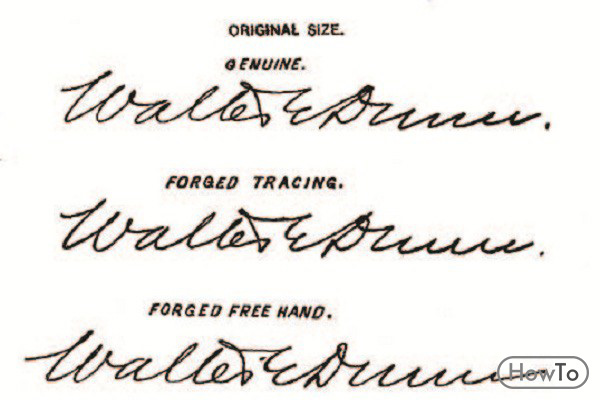 ORIGINAL SIZE.
GENUINE.
Walter E Dunn.
FORGED TRACING.
Walter E Dunn.
FORGED FREE HAND.
Walter E Dunn
HowTo